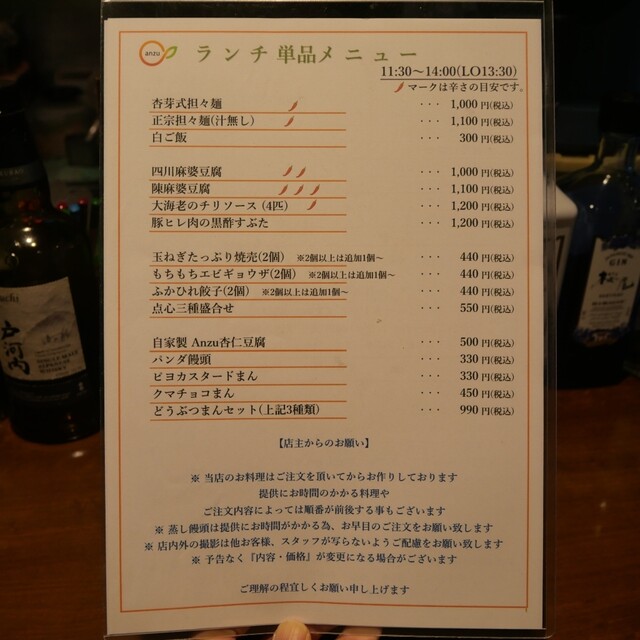 anzu
ランチ単品メニュー
11:30～14:00(LO13:30)
マークは辛さの目安です。
杏芽式担々麺 ・・・ 1,000 円(税込)
正宗担々麺(汁無し) ・・・ 1,100 円(税込)
白ご飯 ・・・ 300 円(税込)
四川麻婆豆腐 ・・・ 1,000 円(税込)
陳麻婆豆腐 ・・・ 1,100 円(税込)
大海老のチリソース (4匹) ・・・ 1,200 円(税込)
豚ヒレ肉の黒酢すぶた ・・・ 1,200 円(税込)
玉ねぎたっぷり焼売(2個) ※2個以上は追加1個～ ・・・ 440 円(税込)
もちもちエビギョウザ(2個) ※2個以上は追加1個～ ・・・ 440 円(税込)
ふかひれ餃子(2個) ※2個以上は追加1個～ ・・・ 440 円(税込)
点心三種盛合せ ・・・ 550 円(税込)
自家製 Anzu杏仁豆腐 ・・・ 500 円(税込)
パンダ饅頭 ・・・ 330 円(税込)
ピヨカスタードまん ・・・ 330 円(税込)
クマチョコまん ・・・ 450 円(税込)
どうぶつまんセット(上記3種類) ・・・ 990 円(税込)
【店主からのお願い】
※ 当店のお料理はご注文を頂いてからお作りしております
提供にお時間のかかる料理や
ご注文内容によっては順番が前後する事もございます
※ 蒸し饅頭は提供にお時間がかかる為、お早目のご注文をお願い致します
※ 店内外の撮影は他お客様、スタッフが写らないようご配慮をお願い致します
※ 予告なく『内容・価格』が変更になる場合がございます
ご理解の程宜しくお願い申し上げます
戸河内
SINGLE MALT
JAPANESE
WHISKY
GIN